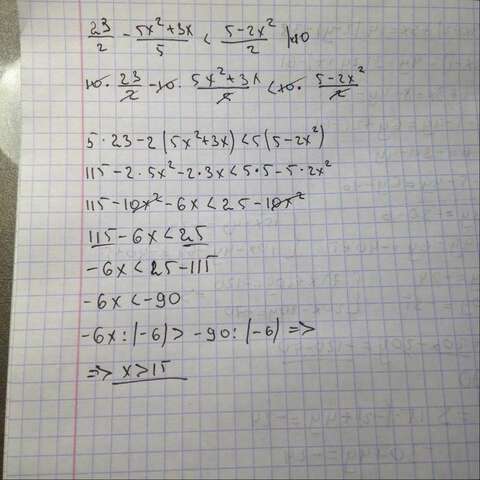 23/2 - 5x²+3x/5 < 5-2x²/2 |·10
10· 23/2 - 10· 5x²+3x/5 < 10· 5-2x²/2
5·23-2(5x²+3x)<5(5-2x²)
115-2·5x²-2·3x<5·5-5·2x²
115-10x²-6x<25-10x²
115-6x<25
-6x<25-115
-6x<-90
-6x:(-6)>-90:(-6) =>
=> x>15